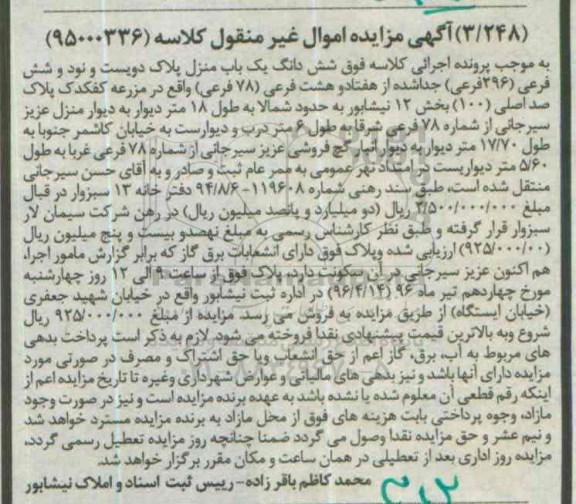 (۳/۲۴۸)آگهی مزایده اموال غیر منقول کلاسه (۹۵۰۰۰۳۳۶)
به موجب پرونده اجرائی کلاسه فوق شش دانگ یک باب منزل پلاک دویست و نود و شش
فرعی (۲۹۶فرعی) جداشده از هفتادو هشت فرعی (۷۸ فرعی) واقع در مزرعه کفکدک پلاک
صد اصلی (۱۰۰) بخش ۱۲ نیشابور به حدود شمالا به طول ۱۸ متر دیوار به دیوار منزل عزیز
سیرجانی از شماره ۷۸ فرعی شرقا به طول ۶ متر درب و دیوارست به خیابان کاشمر جنوبا به
طول ۱۷/۷۰ متر دیوار به دیوار انبار گچ فروشی عزیز سیرجانی از شماره ۷۸ فرعی غربا به طول
۵/۶۰ متر دیواریست در امتداد نهر عمومی به ممر عام ثبت و صادر و به آقای حسن سیرجانی
منتقل شده است، طبق سند رهنی شماره ۱۱۹۶۰۸-۹۴/۸/۶ دفتر خانه ۱۳ سبزوار در قبال
مبلغ ۲/۵۰۰/۰۰۰/۰۰۰ ریال (دو میلیارد و پانصد میلیون ریال) در رهن شرکت سیمان لار
سبزوار قرار گرفته و طبق نظر کارشناس رسمی به مبلغ نهصدو بیست و پنج میلیون ریال
(۹۲۵/۰۰۰/۰۰) ارزیابی شده وپلاک فوق دارای انشعابات برق گاز که برابر گزارش مامور اجرا،
هم اکنون عزیز سیرجانی در آن سکونت دارد، پلاک فوق از ساعت ۹ الی ۱۲ روز چهارشنبه
مورخ چهاردهم تیر ماه ۹۶ (۹۶/۴/۱۴) در اداره ثبت نیشابور واقع در خیابان شهید جعفری
(خیابان ایستگاه) از طریق مزایده به فروش می رسد. مزایده از مبلغ ۹۲۵/۰۰۰/۰۰۰ ریال
شروع وبه بالاترین قیمت پیشنهادی نقدا فروخته می شود. لازم به ذکر است پرداخت بدهی
های مربوط به آب، برق، گاز اعم از حق انشعاب ویا حق اشتراک و مصرف در صورتی مورد
مزایده دارای آنها باشد و نیز بدهی های مالیاتی و عوارض شهرداری وغیره تا تاریخ مزایده اعم از
اینکه رقم قطعی آن معلوم شده یا نشده باشد به عهده برنده مزایده است و نیز در صورت وجود
مازاد، وجوه پرداختی بابت هزینه های فوق از محل مازاد به برنده مزایده مسترد خواهد شد
و نیم عشر و حق مزایده نقدا وصول می گردد ضمنا چنانچه روز مزایده تعطیل رسمی گردد،
مزایده روز اداری بعد از تعطیلی در همان ساعت و مکان مقرر برگزار خواهد شد.
محمد کاظم باقر زاده-رییس ثبت اسناد و املاک نیشابور